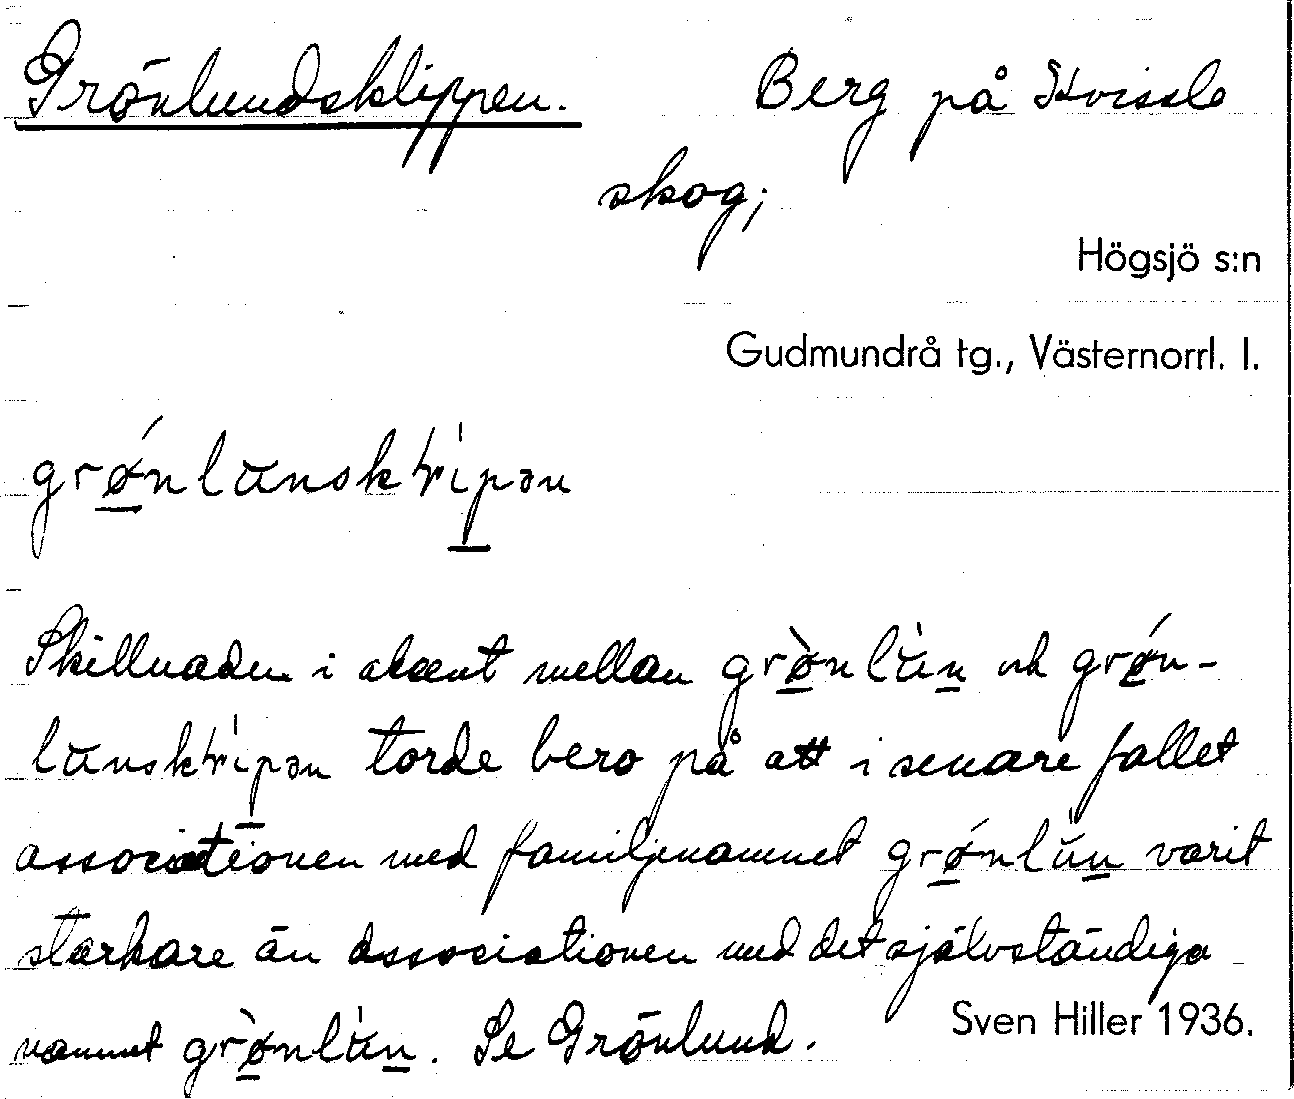 Grönlundsklippen. Berg på Hvissle
skog;
Högsjö s:n
Gudmundrå tg., Västernorrl. l.
Skillnaden i akcent mellan grø̀nlùn och grǿn-
torde bero på att i senare fallet
associationen med familjenamnet grǿnlùn varit
starkare än associationen med det självständiga
namnet grø̀nlùn. Se Grönlund.
Sven Hiller 1936.